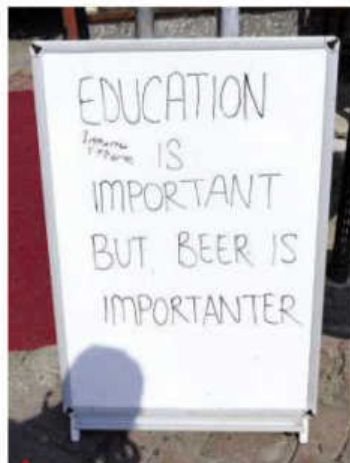 EDUCATION
IS
IMPORTANT
BUT, BEER IS
IMPORTANTER